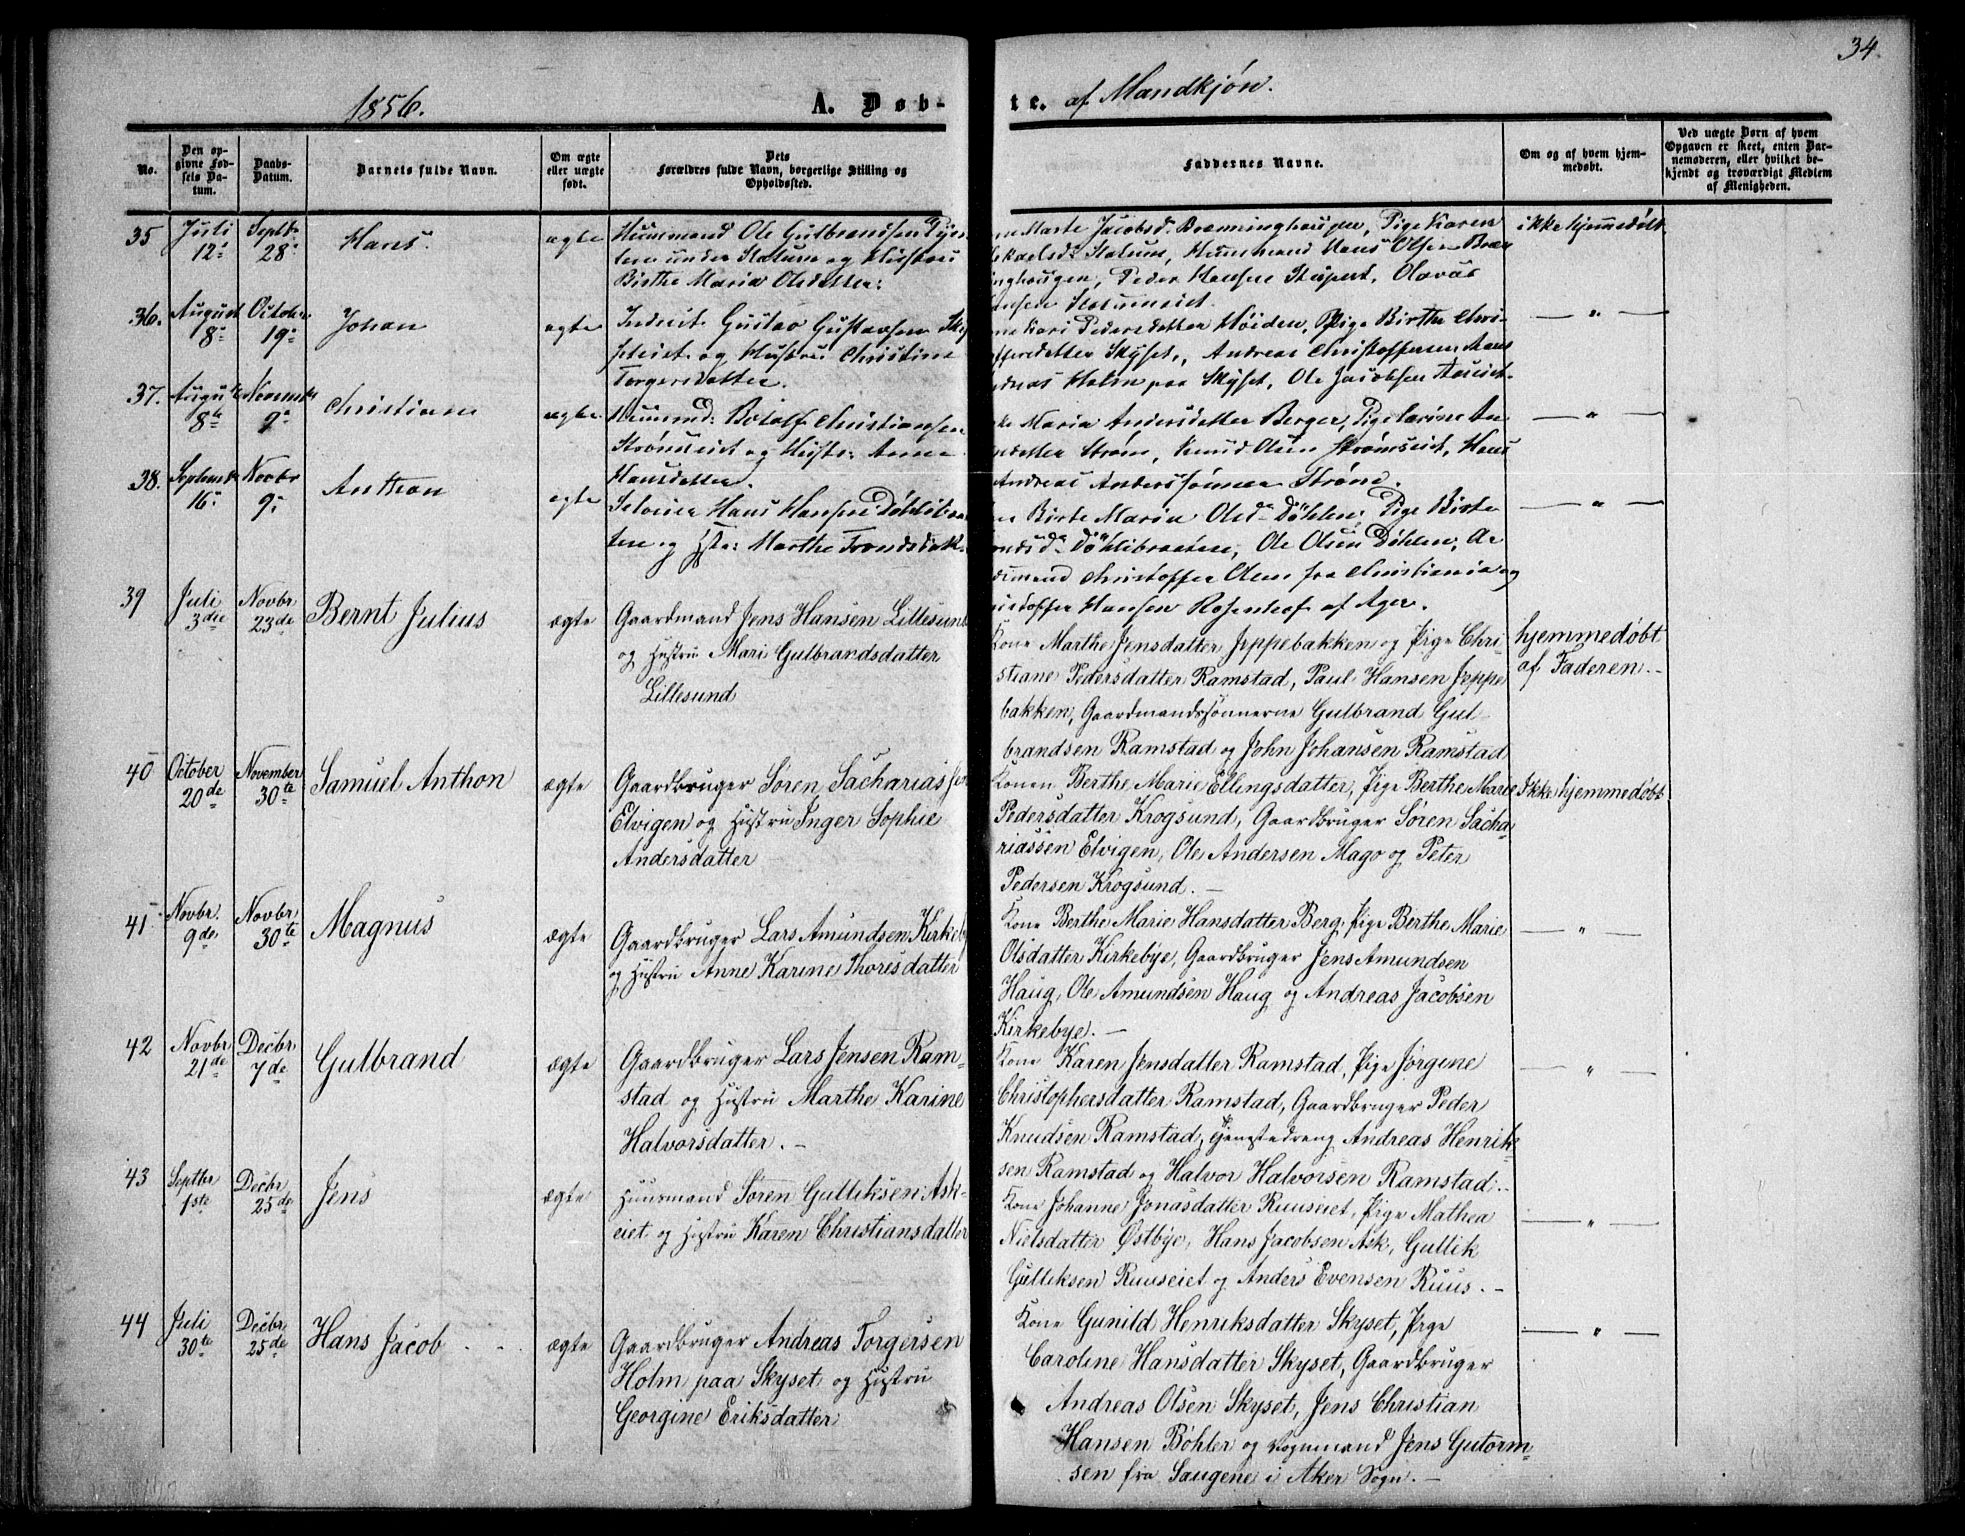 34.
1856.
A. Døb-
te. af Mandkjøn.
No.
Den op-
givne Fød-
sels Da-
tum.
Daabs-
Datum.
Barnets fulde Navn.
Om ægte
eller uægte
født.
Dets
Forældres fulde Navn, borgerlige Stilling og
Opholdssted.
Faddernes Navne.
Om og af hvem hjem-
medøbt.
Ved uægte Børn af hvem
Opgaven er skeet, enten Bar-
nemoderen, eller hvilket be-
kjendt og troværdigt Medlem
af Menigheden.
35
Juli
12
Septbr
28
Hans.
ægte
Huusmand Ole Gulbrandsen
under og Hustru
Birthe Maria Olsdatter.
Marte Jacobsd. Brænninghaugen, Pige Karen
Huusmand Hans Olsen Bræn
inghaugen, Peder Hansen Olavus
ikke hjemmedøbt
36.
August
8
October
19
Johan
ægte
Inderst Gustav Gustavsen
og Hustru Christine
Torgersdatter.
Kari Pedersdatter Høiden, Pige Birthe Chri-
Skyset, Andreas Christoffersen
Holm paa Skyset, Ole Jacobsen
— " —
37.
August
8de
Novemb
9
Christian
ægte
Huusmd: Botolf Christiansen
Strømseiet og Hustr: Anne
Hansdatter.
Maria Andersdatter Berger, Pige Carine An
datter Strøm, Knud Olsen Strømseiet, Hans
Andreas Anderssønner Strøm.
— " —
38.
Septemb
16
Novbr
9
Anthon
ægte
Selveier Hans Hansen Døhlibraa
ten og Hst: Marthe Trondsdatt.
Birte Maria Olsd Døhlen, Pige Birte
Døhlibraaten, Ole Olsen Døhlen, Ar
Christoffer Olsen fra Christiania og
Hansen Rosenhof af Ager.
— " —
39
Juli
3die
Novbr
23de
Bernt Julius
ægte
Gaardmand Jens Hansen Lillesund
og Hustru Mari Gulbrandsdatter
Lillesund
Kone Marthe Jensdatter Jeppebakken og Pige Chri-
stiane Pedersdatter Ramstad, Paul Hansen Jeppe
bakken, Gaardmandssønnerne Gulbrand Gul
brandsen Ramstad og John Johansen Ramstad
hjemmedøbt
af Faderen.
40
October
20de
November
30te
Samuel Anthon
ægte
Gaardbruger Søren Sachariassen
Elvigen og Hustru Inger Sophie
Andersdatter
Konen Berthe Marie Ellingsdatter, Pige Berthe Marie
Pedersdatter Krogsund, Gaardbruger Søren Sacha-
riassen Elvigen, Ole Andersen Mago og Peter
Pedersen Krogsund.
Ikke hjemmedøbt
41
Novbr.
9de
Novbr
30te
Magnus
ægte
Gaardbruger Lars Amundsen Kirkeby
og Hustru Anne Karine Thoresdatter
Kone Berthe Marie Hansdatter Berg, Pige Berthe Marie
Olsdatter Kirkebye, Gaardbruger Jens Amundsen
Haug, Ole Amundsen Haug og Andreas Jacobsen
Kirkebye.
— " —
42
Novbr
21de
Decbr
7de
Gulbrand
ægte
Gaardbruger Lars Jensen Ram-
stad og Hustru Marthe Karine
Halvorsdatter.
Kone Karen Jensdatter Ramstad, Pige Jørgine
Christophersdatter Ramstad, Gaardbruger Peder
Knudsen Ramstad, Tjenestedreng Andreas Henrik-
sen Ramstad og Halvor Halvorsen Ramstad.
— " —
43
Septbr
1ste
Decbr
25de
Jens
ægte
Huusmand Søren Gulliksen Ask-
eiet og Hustru Karen Christiansdatter
Kone Johanne Jonasdatter Ruuseiet, Pige Mathea
Nielsdatter Østbye, Hans Jacobsen Ask, Gullik
Gulliksen Ruuseiet og Anders Evensen Ruus.
— " —
44
Juli
30te
Decbr
25de
Hans Jacob
ægte
Gaardbruger Andreas Torgersen
Holm paa Skyset og Hustru
Georgine Eriksdatter
Kone Gunild Henriksdatter Skyset, Pige
Caroline Hansdatter Skyset, Gaardbruger
Andreas Olsen Skyset, Jens Christian
Hansen Bøhler og Vognmand Jens Gutorm-
sen fra Saugene i Aker Sogn.
— " —